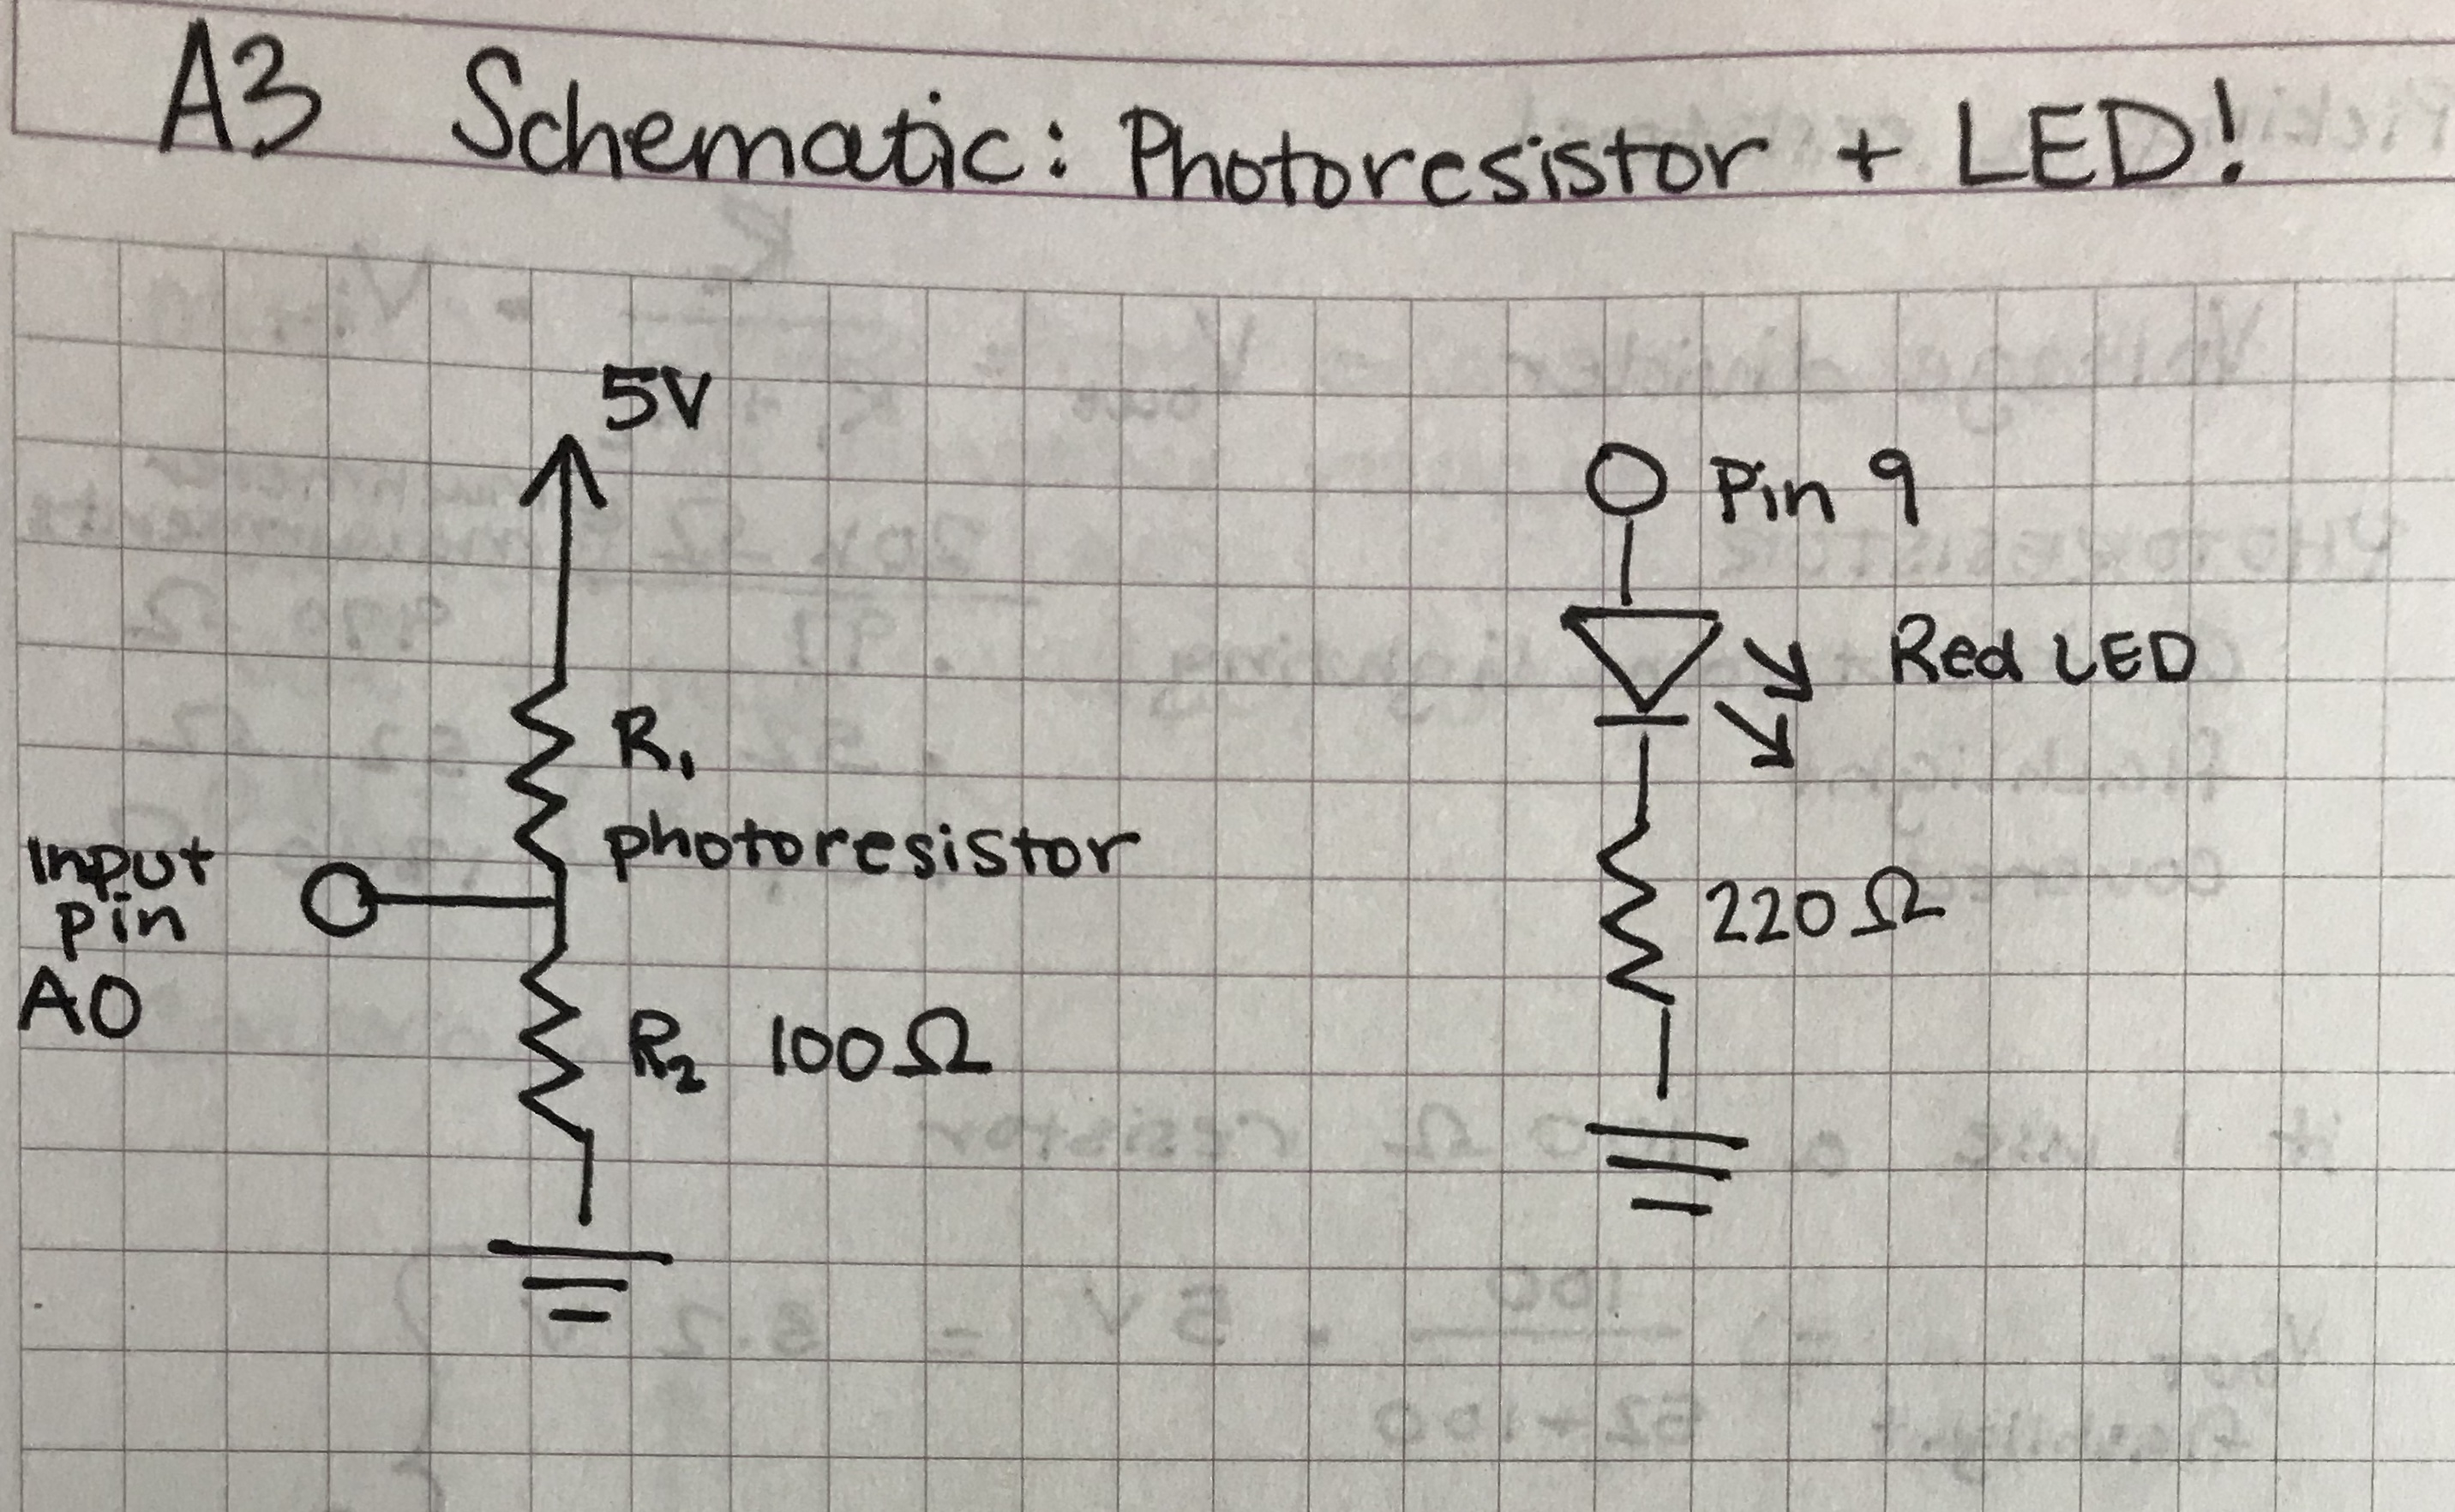 A3 Schematic: Photoresistor + LED!
5V
R₁
photoresistor
Input
pin
A0
R₂ 100Ω
Pin 9
Red LED
220Ω